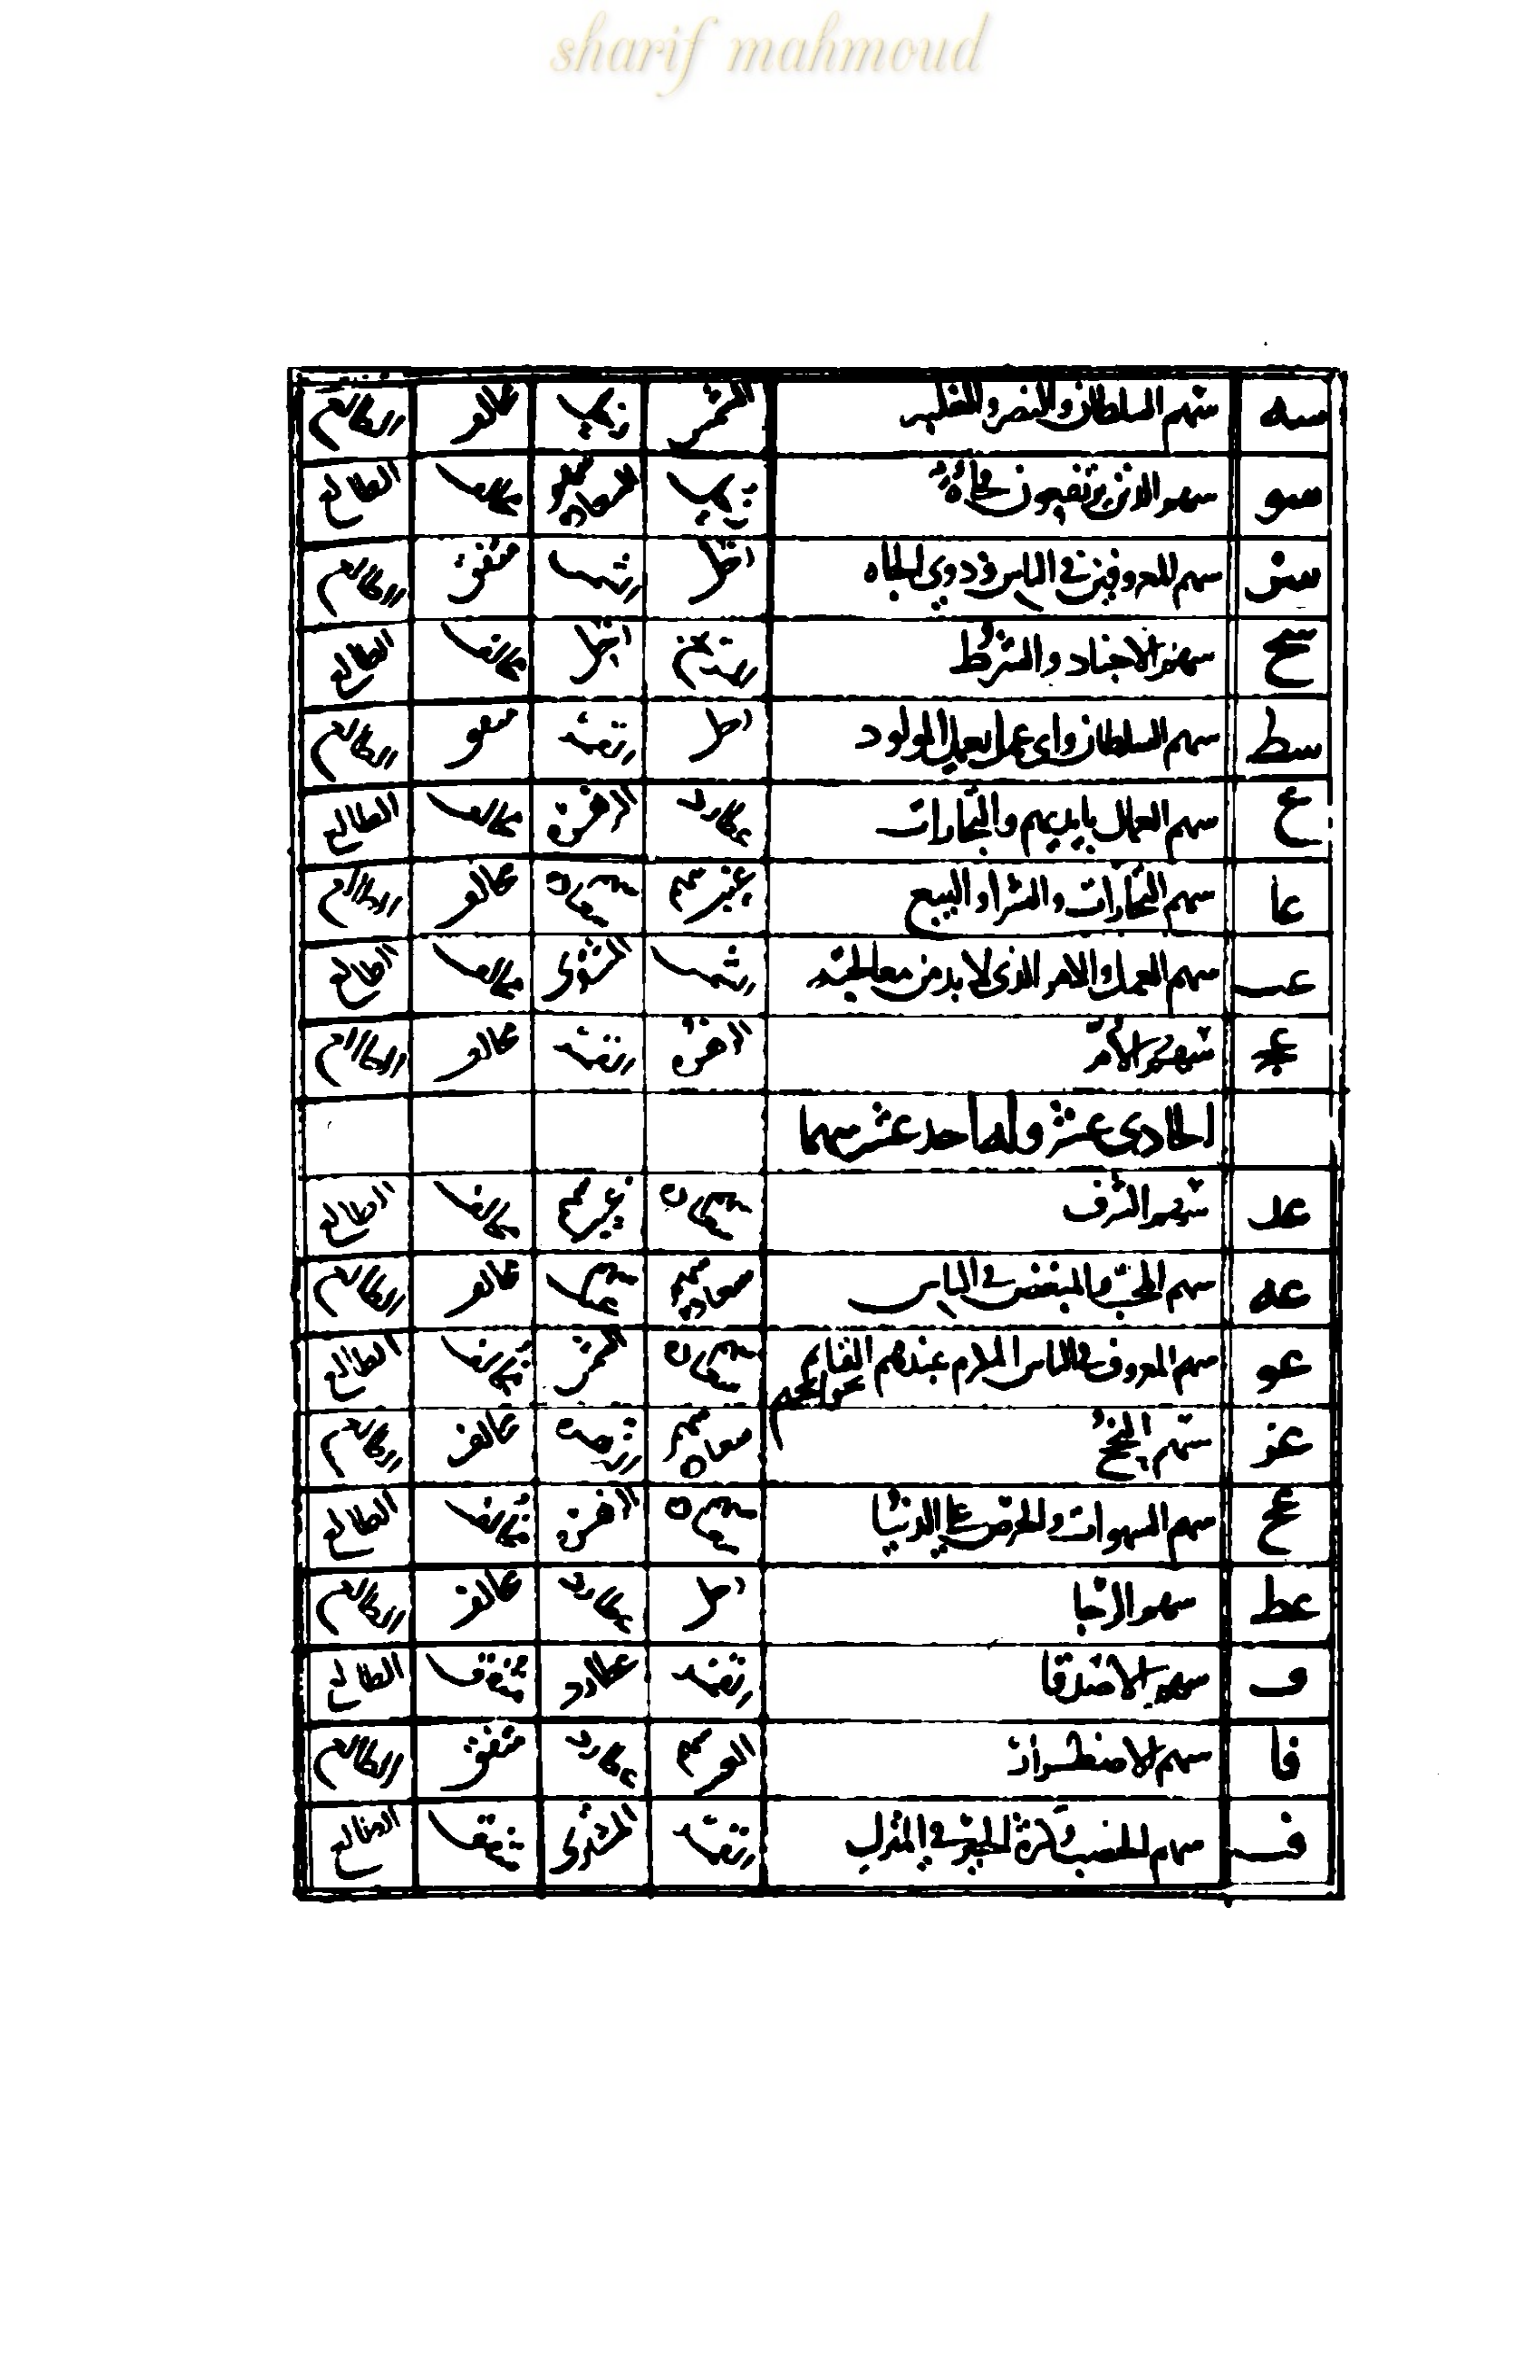 sharif mahmoud
سه سهم السلطان والنصر والغلبه الشمس زحل مخالف الطالع
سو سهم الذين يرتفعون فجأة زحل سهم السعادة مخالف الطالع
سز سهم المعروفين في الناس وذوي الجاه عطارد الشمس متفق الطالع
سح سهم الاجناد والشرط المريخ زحل مخالف الطالع
سط سهم السلطان واي عمل يعمل المولود زحل القمر متفق الطالع
ع سهم العمال بايديهم والتجارات عطارد الزهرة مخالف الطالع
عا سهم التجارات والشرا والبيع سهم الغيب سهم السعادة مخالف الطالع
عب سهم العمل والامر الذي لا بد من معالجته الشمس المشتري مخالف الطالع
عج سهم الأم الزهرة القمر مخالف الطالع
الحادي عشر ولها احد عشر سهما
عد سهم الشرف سهم السعادة سهم الغيب مخالف الطالع
عه سهم المحب والمبغض في الناس سهم السعادة سهم الغيب مخالف الطالع
عو سهم المعروف في الناس المكرم عندهم القايم بحوايجهم سهم السعادة الشمس مخالف الطالع
عز سهم النجح سهم السعادة المشتري مخالف الطالع
عح سهم الشهوات والحرص على الدنيا سهم السعادة الزهرة مخالف الطالع
عط سهم الرجا زحل عطارد مخالف الطالع
ف سهم الاصدقا القمر عطارد متفق الطالع
فا سهم الاضطرار عطارد متفق الطالع
فب سهم الخصب وكثرة الخير في المنزل القمر المشتري متفق الطالع